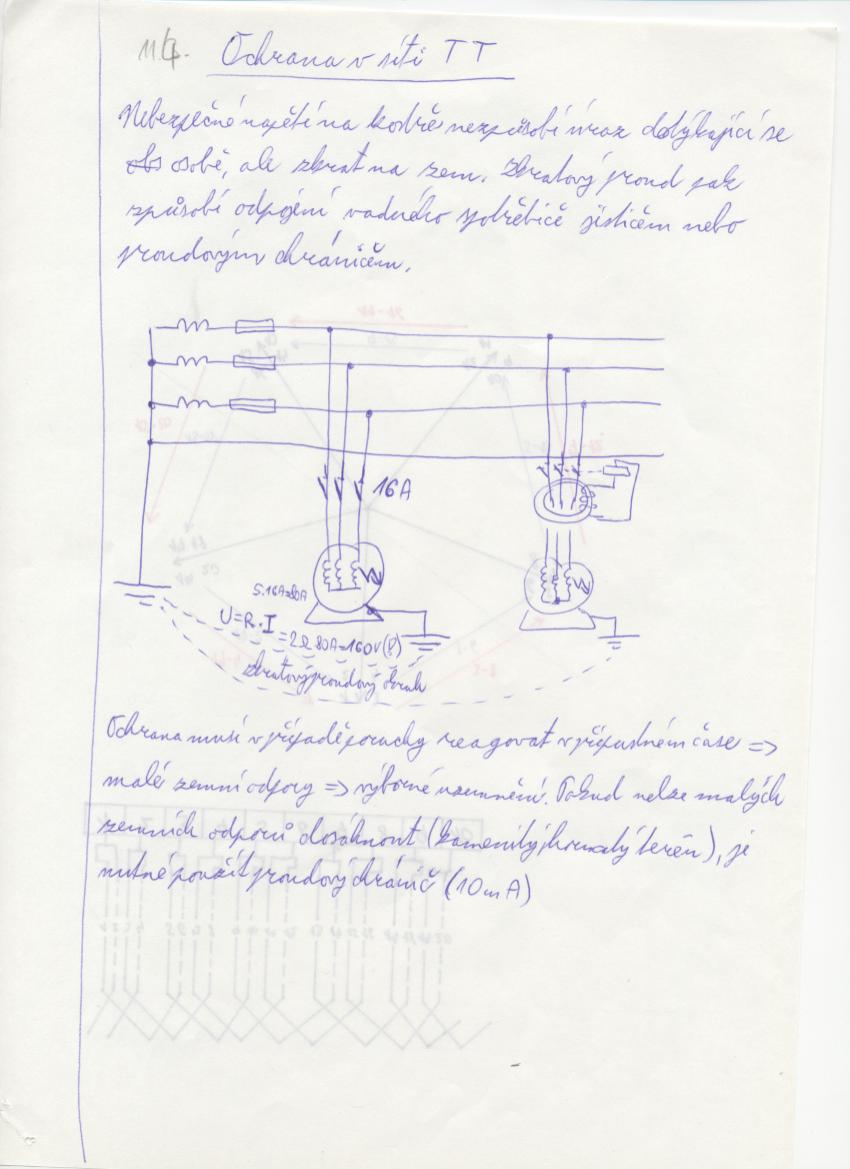 Ochrana v síti TT
Nebezpečné napětí na kostře nezpůsobí úraz dotýkající se
obs osobě, ale zkrat na zem. Zkratový proud pak
způsobí odpojení vadného spotřebiče jističem nebo
proudovým chráničem.
16A
5.16A=80A
U=R.I
=2Ω 80A=160V(!)
zkratový proudový okruh
Ochrana musí v případě poruchy reagovat v přípustném čase =>
malé zemní odpory => výborné uzemnění. Pokud nelze malých
zemních odporů dosáhnout (kamenitý, hornatý terén), je
nutné použít proudový chránič (10mA)